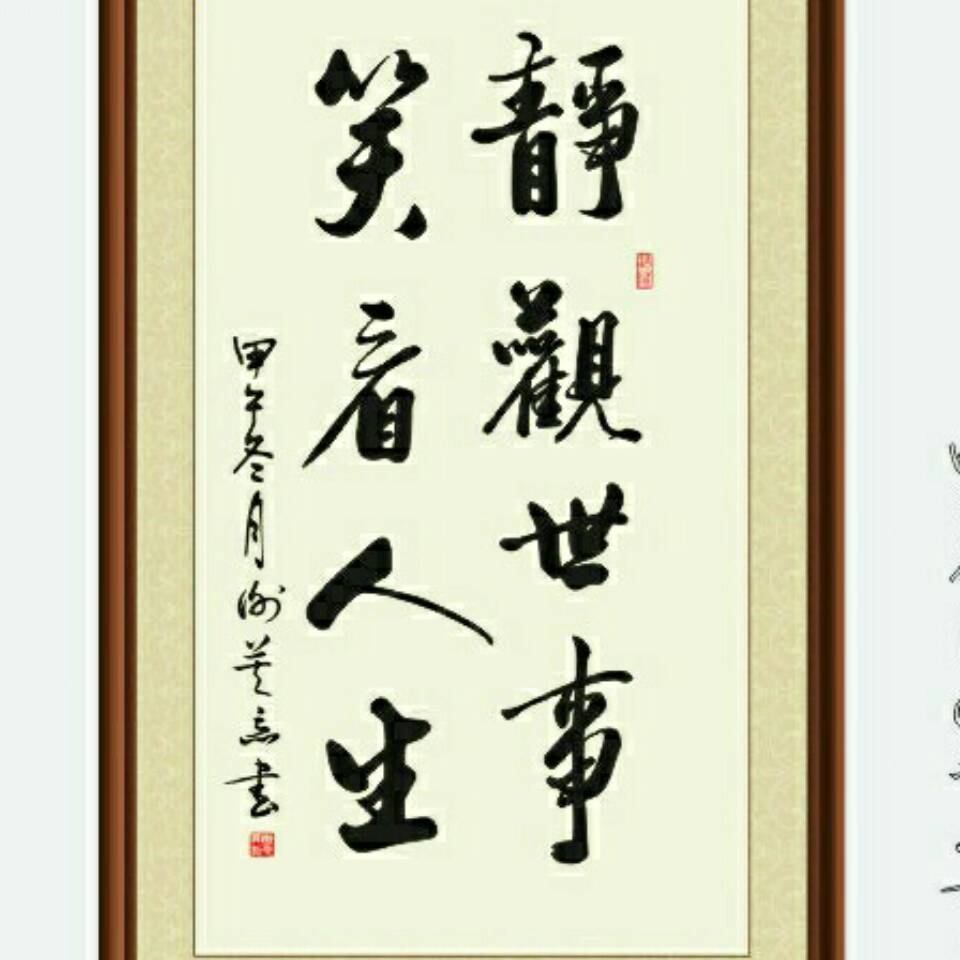 靜觀世事
笑看人生
甲午冬月謝
書